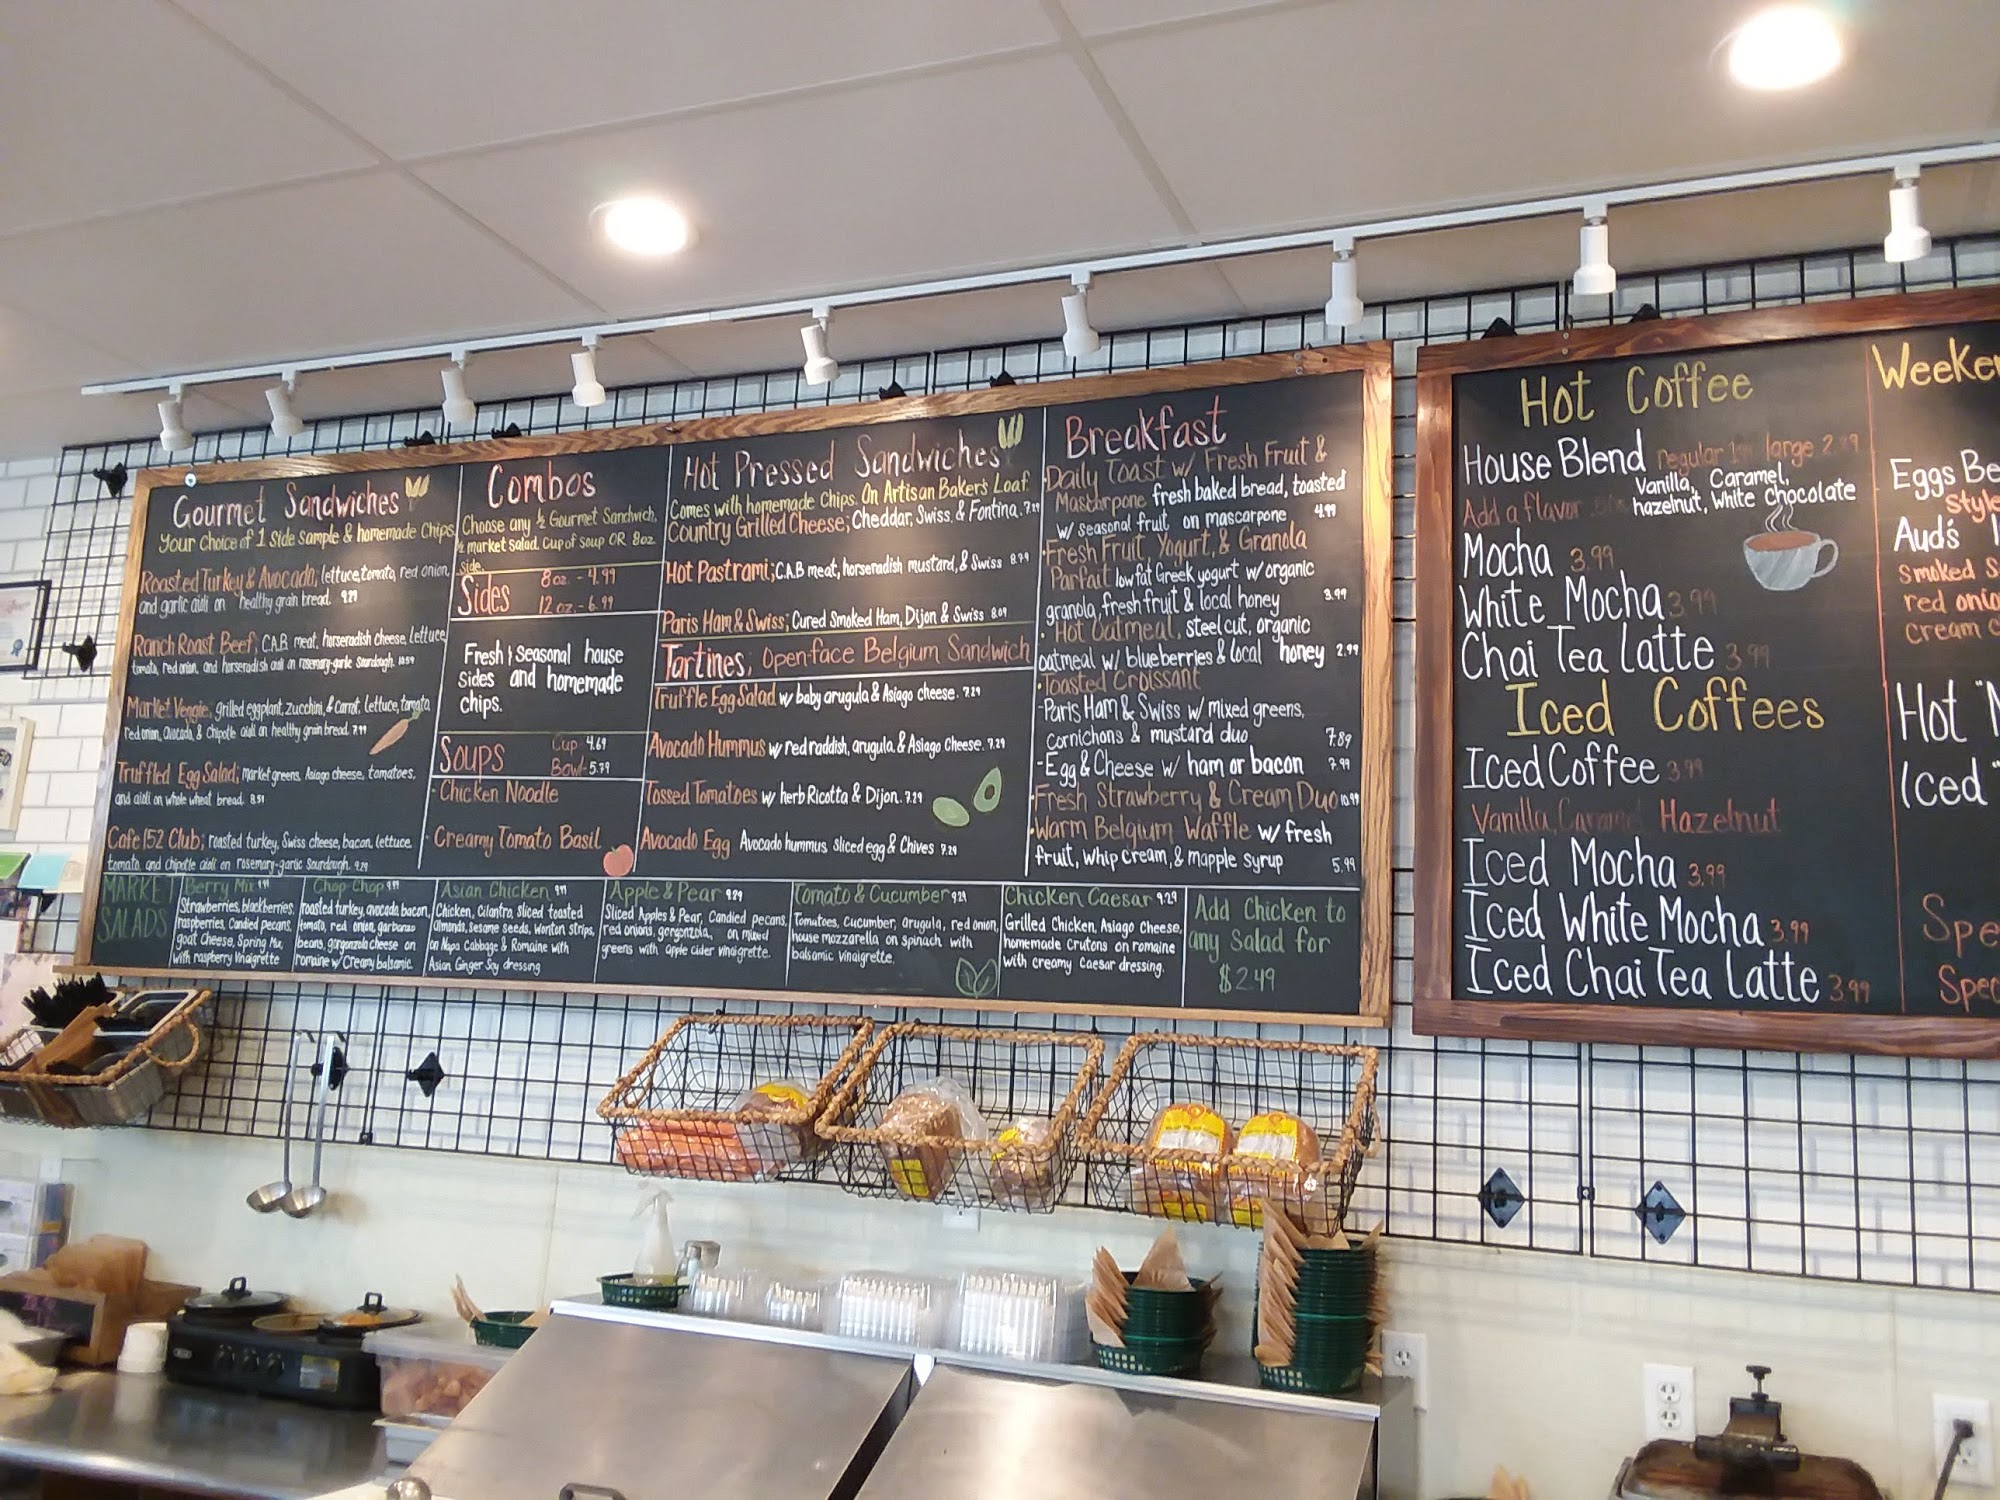 Gourmet Sandwiches
Your Choice of 1 Side Sample & homemade Chips
Roasted Turkey & Avocado; lettuce, tomato, red onion,
and garlic aioli on healthy grain bread. 9.29
Ranch Roast Beef; C.A.B. meat, horseradish cheese, lettuce
tomato, red onion, and horseradish aioli on rosemary-garlic sourdough. 10.59
Market Veggie; grilled eggplant, zucchini, & Carrot, lettuce, tomato,
red onion, avocado, & chipotle aioli on healthy grain bread. 7.99
Truffled Egg Salad; market greens, Asiago cheese, tomatoes,
and aioli on whole wheat bread. 8.59
Cafe 152 Club; roasted turkey, Swiss cheese, bacon, lettuce
tomato and chipotle aioli on rosemary-garlic sourdough. 9.29
Combos
Choose any ½ Gourmet Sandwich,
½ market salad. Cup of soup OR 8oz
side.
Sides
8 oz. - 4.99
12 oz. - 6.99
Fresh & seasonal house
sides and homemade
chips.
Soups
Cup 4.69
Bowl - 5.79
- Chicken Noodle
- Creamy Tomato Basil
Hot Pressed Sandwiches
Comes with homemade Chips. On Artisan Baker's Loaf
Country Grilled Cheese; Cheddar, Swiss, & Fontina. 7.29
Hot Pastrami; C.A.B meat, horseradish mustard, & Swiss 8.79
Paris Ham & Swiss; Cured Smoked Ham, Dijon & Swiss 8.09
Tartines; Open-face Belgium Sandwich
Truffle Egg Salad w/ baby arugula & Asiago cheese. 7.29
Avocado Hummus w/ red raddish, arugula, & Asiago Cheese. 7.29
Tossed Tomatoes w/ herb Ricotta & Dijon. 7.29
Avocado Egg Avocado hummus sliced egg & Chives 7.29
Breakfast
• Daily Toast w/ Fresh Fruit &
Mascarpone fresh baked bread, toasted
w/ seasonal fruit on mascarpone 4.99
• Fresh Fruit, Yogurt, & Granola
Parfait low fat Greek yogurt w/ organic
granola, fresh fruit & local honey 3.99
• Hot Oatmeal, steel cut, organic
oatmeal w/ blueberries & local honey 2.99
• Toasted Croissant
- Paris Ham & Swiss w/ mixed greens,
Cornichons & mustard duo 7.89
- Egg & Cheese w/ ham or bacon 7.99
• Fresh Strawberry & Cream Duo 10.99
• Warm Belgium Waffle w/ fresh
fruit, whip cream, & mapple syrup 5.99
MARKET
SALADS
Berry Mix 9.99
Strawberries, blackberries,
raspberries, Candied pecans,
goat Cheese, Spring Mix,
with raspberry Vinaigrette
Chop Chop 9.99
roasted turkey, avocado, bacon,
tomato, red onion, garbanzo
beans, gorgonzola cheese on
romaine w/ Creamy balsamic
Asian Chicken 9.99
Chicken, Cilantro, sliced toasted
almonds, sesame seeds, Wonton strips,
on Napa Cabbage & Romaine with
Asian Ginger Soy dressing
Apple & Pear 9.29
Sliced Apples & Pear, Candied pecans,
red onions, gorgonzola, on mixed
greens with apple cider vinaigrette.
Tomato & Cucumber 9.29
Tomatoes, Cucumber, arugula, red onion,
house mozzarella on spinach with
balsamic Vinaigrette.
Chicken Caesar 9.29
Grilled Chicken, Asiago Cheese,
homemade Crutons on romaine
with creamy Caesar dressing.
Add Chicken to
any Salad for
$2.49
Hot Coffee
House Blend regular large
Add a flavor Vanilla, Caramel,
hazelnut, White Chocolate
Mocha 3.99
White Mocha 3.99
Chai Tea Latte 3.99
Iced Coffees
Iced Coffee 3.99
Vanilla, Caramel Hazelnut
Iced Mocha 3.99
Iced White Mocha 3.99
Iced Chai Tea Latte 3.99
Weeke
Eggs Be
Style
Aud's
Smoked S
red onio
cream c
Hot
Iced
Spe
Spec